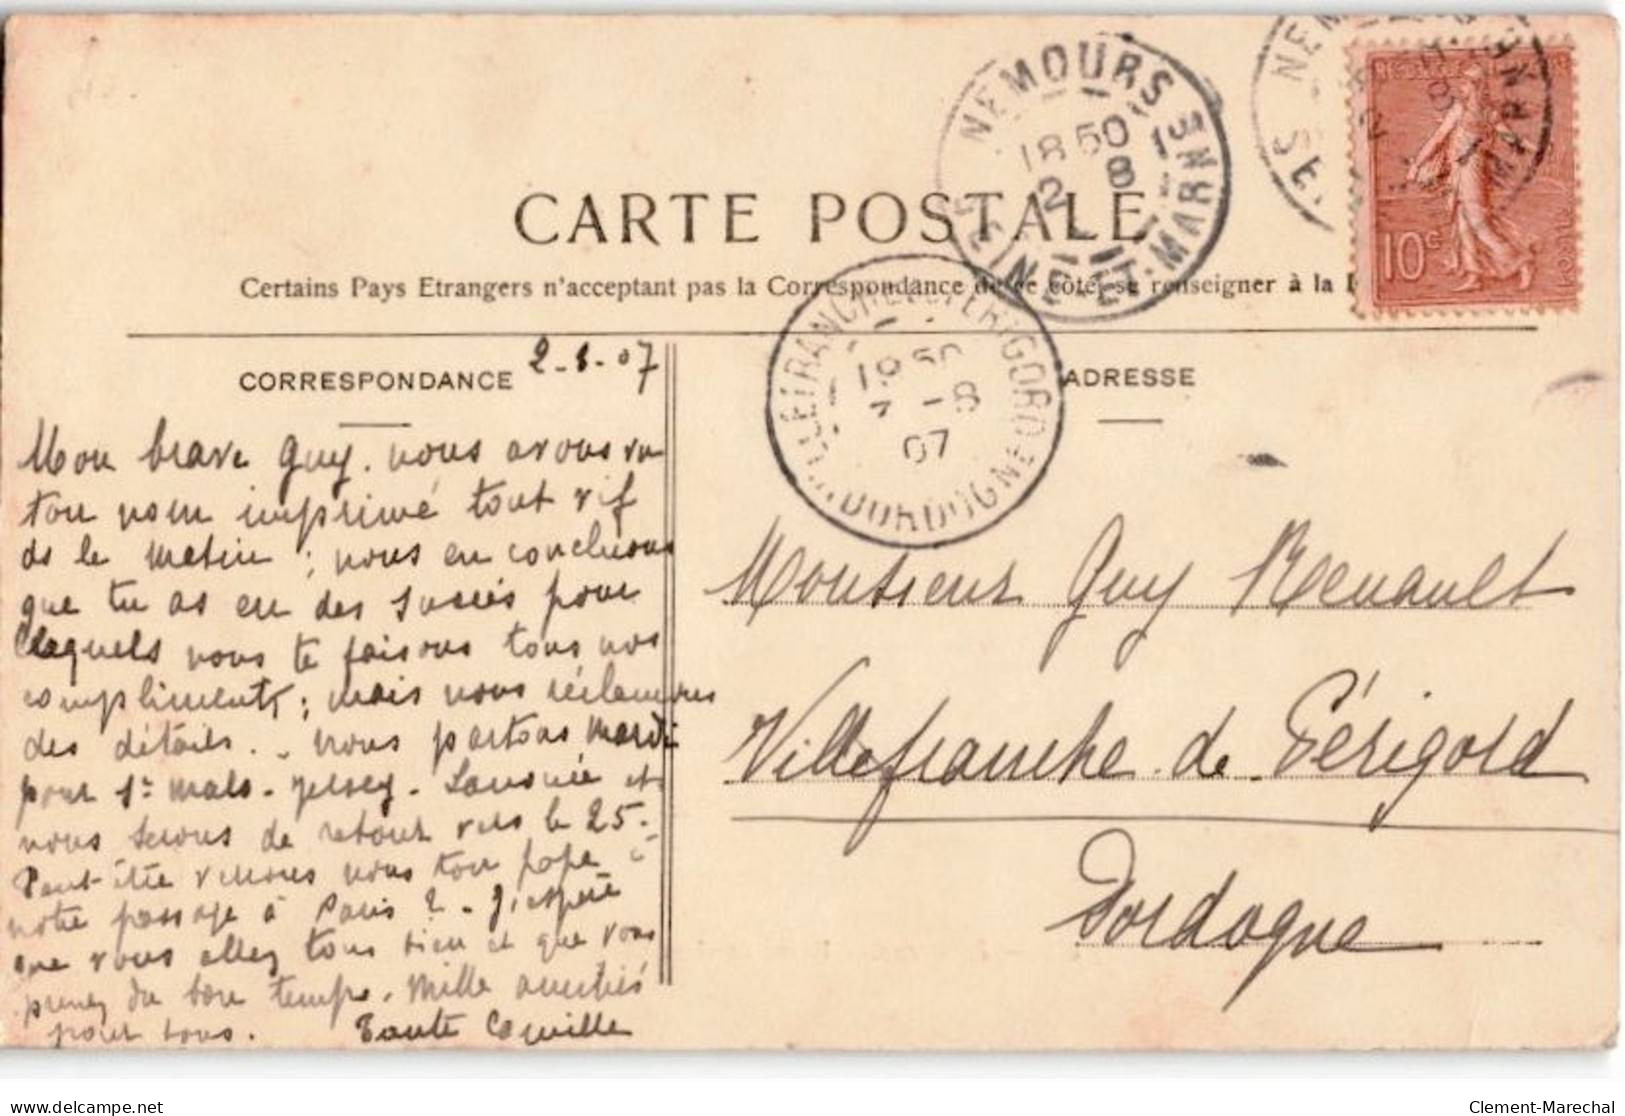 CARTE POSTALE
Certains Pays Etrangers n'acceptant pas la Correspondance de ce côté, se renseigner à la
CORRESPONDANCE
2-8-07
ADRESSE
NEMOURS
SEINE-ET-MARNE
18 50
2 8
VILLEFRANCHE-DE-PERIGORD
DORDOGNE
7 -8
07
10c
Mon brave Guy. nous avons vu
ton nom imprimé tout vif
ds le Matin ; nous en concluons
que tu as eu des succès pour
lesquels nous te faisons tous nos
compliments ; mais nous réclamons
des détails. - Nous partons Mardi
pour St Malo - Jersey - et
nous serons de retour vers le 25.
Peut-être verrons nous ton papa à
notre passage à Paris ? - J'espère
que vous allez tous bien et que vous
prenez du bon temps. Mille amitiés
pour tous. Tante Camille
Monsieur Guy Renault
Villefranche de Périgord
Dordogne
delcampe.net
Clement-Marechal